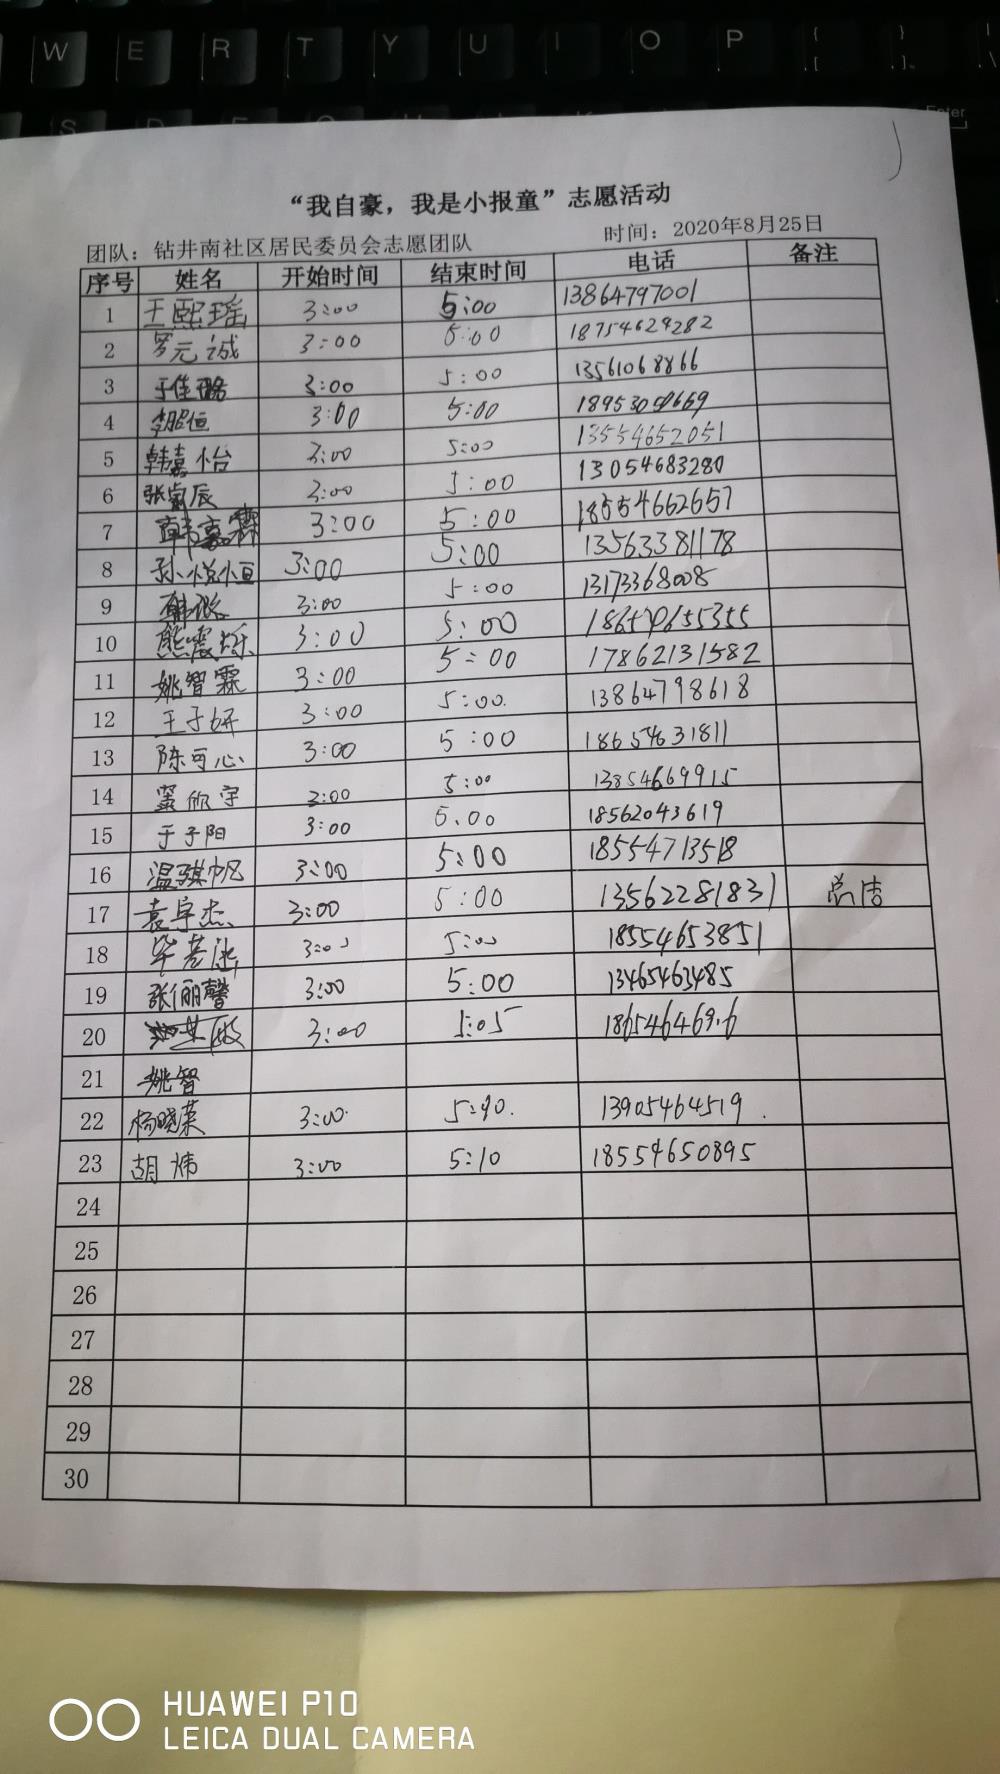 W E R T Y U I O P
Enter
“我自豪，我是小报童”志愿活动
团队：钻井南社区居民委员会志愿团队 时间：2020年8月25日
序号 姓名 开始时间 结束时间 电话 备注
1 王熙瑶 3:00 5:00 13864797001
2 罗元诚 3:00 5:00 18754629282
3 于佳璐 3:00 5:00 13561068866
4 李昭恒 3:00 5:00
5 韩嘉怡 3:00 5:00 13554652051
6 张宸辰 3:00 5:00 13054683280
7 韩嘉霖 3:00 5:00 18554662657
8 孙悦恒 3:00 5:00 13563381178
9 3:00 5:00 13173368008
10 熊震烁 3:00 5:00
11 姚智霖 3:00 5:00 17862131582
12 王子妍 3:00 5:00. 13864798618
13 陈可心 3:00 5:00 18654631811
14 3:00 5:00 13854669915
15 于子阳 3:00 5.00 18562043619
16 温骐帆 3:00 5:00 18554713518
17 袁宇杰 3:00 5:00 13562281831 总洁
18 3:00 5:00 18554653851
19 张俪馨 3:00 5:00 13465463485
20 3:00 5:05
21 姚智
22 杨晓荣 3:00. 5:90. 13905464519.
23 胡炜 3:00 5:10 18554650895
24
25
26
27
28
29
30
HUAWEI P10
LEICA DUAL CAMERA